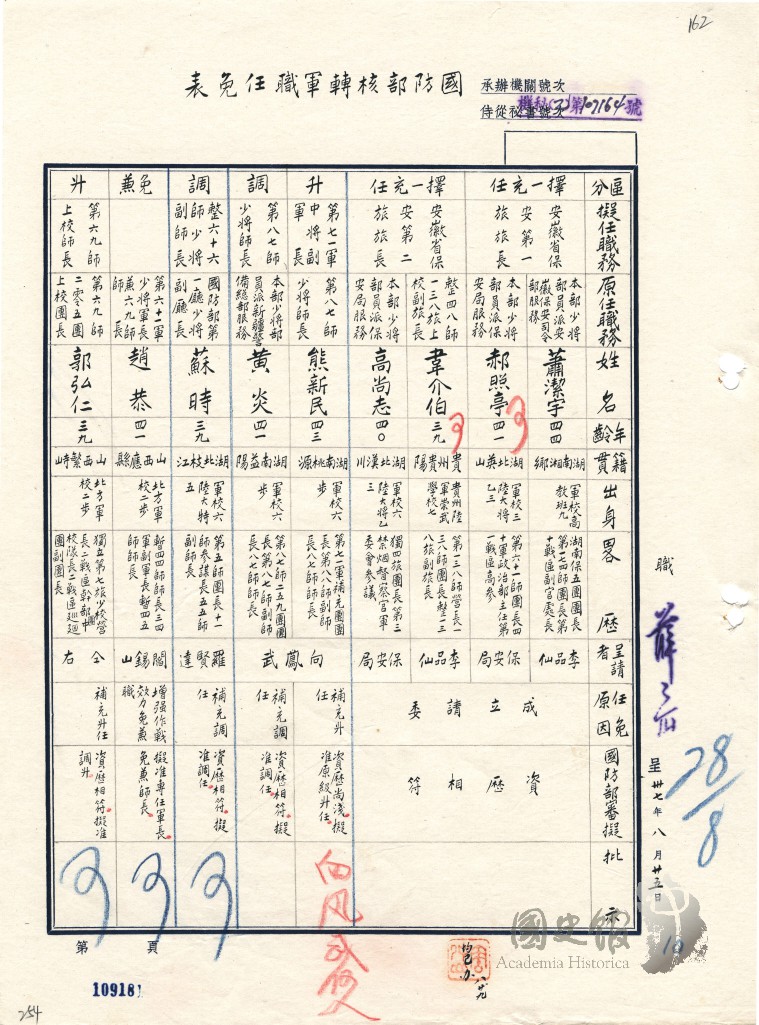 162
國防部核轉軍職任免表
承辦機關號次
侍從祕書號次
機秘(乙)第107164號
區分
擬任職務
原任職務
姓名
年齡
籍貫
出身
畧歷
呈請者
任免原因
國防部審擬
批示
擇一充任
安徽省保安第一旅旅長
本部少將部員派安徽保安司令部服務
蕭潔宇
四四
湖南湘鄉
軍校高教班九
湖南保五團團長第一七四師團長第十戰區副官處長
李品仙
本部少將部員派保安局服務
郝照亭
四一
湖北英山
軍校三陸大將乙三
第六十一師團長四十軍政治部主任第一戰區高參
保安局
擇一充任
安徽省保安第二旅旅長
整四八師一三八旅上校副旅長
韋介伯
三九
貴州貴陽
貴州陸軍崇武學校七
第一三八師營長一三八師團長整一三八旅副旅長
李品仙
本部少將部員派保安局服務
高尚志
四〇
湖北漢川
軍校六陸大將乙三
獨四旅團長第三禁烟督察官軍委會參議
保安局
成立請委
資歷相符
升
第七一軍中將副軍長
第八七師少將師長
熊新民
四三
湖南桃源
軍校六步
第七一軍補充團團長第八八師副師長八七師師長
向鳳武
補升任
資歷尚淺擬准原級升任。
向鳳武何人
調
第八七師少將師長
本部少將部員派新疆警備總部服務
黃炎
四一
湖南益陽
軍校六步
第八七師二五九團團長第八七師副師長八七師師長
補充調任
資歷相符擬准調任。
調
整六十六師少將副師長
國防部第一廳少將副廳長
蘇時
三九
湖北枝江
軍校六陸大特五
第五師團長十一師參謀長五五師副師長
羅賢達
補充調任
資歷相符擬准調任。
可
免兼
第六十一軍少將軍長兼六九師師長
趙恭
四一
山西應縣
北方軍校二步
暫四四師師長三四軍副軍長暫四五師師長
閻錫山
增強作戰效力免兼職
擬准專任軍長免兼師長。
可
升
第六九師上校師長
第六九師二零五團上校團長
郭弘仁
三九
山西繁峙
北方軍校二步
獨立第七旅少校營長二戰區幹部中校隊長二戰區巡廻團副團長
仝右
補充升任
資歷相符擬准調升。
可
職
薛岳
呈
卅七年八月廿五日
28/8
10
第頁
均已办
八廿九
國史館
Academia Historica
109181
254